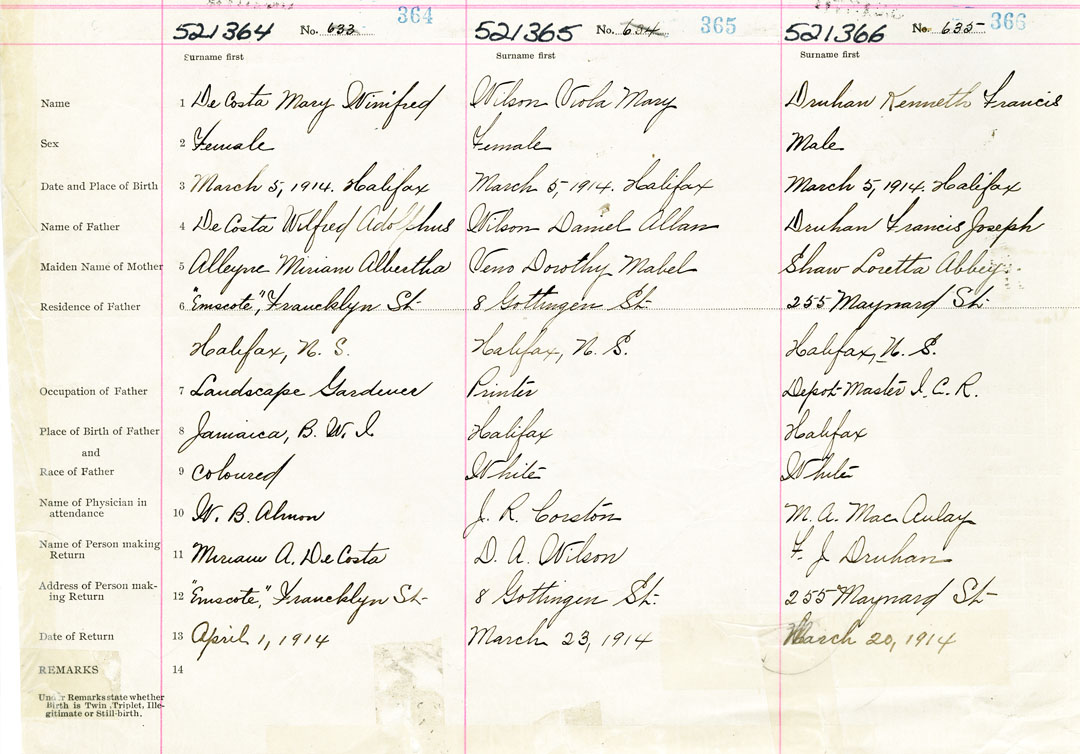 364 365 366
521364 No. 633 521365 No. 634 521366 No. 635
Surname first Surname first Surname first
Name 1 De Costa Mary Winifred Wilson Viola Mary Druhan Kenneth Francis
Sex 2 Female Female Male
Date and Place of Birth 3 March 5, 1914. Halifax March 5, 1914. Halifax March 5, 1914. Halifax
Name of Father 4 De Costa Wilfred Adolphus Wilson Daniel Allan Druhan Francis Joseph
Maiden Name of Mother 5 Alleyne Miriam Albertha Veno Dorothy Mabel Shaw Loretta Abbey
Residence of Father 6 "Emscote", Francklyn St. 8 Gottingen St. 255 Maynard St.
Halifax, N. S. Halifax, N. S. Halifax, N. S.
Occupation of Father 7 Landscape Gardener Printer Depot Master I. C. R.
Place of Birth of Father 8 Jamaica, B. W. I Halifax Halifax
and
Race of Father 9 Coloured White White
Name of Physician in
attendance 10 W. B. Almon J. R. Corston M. A. MacAulay
Name of Person making
Return 11 Miriam A. De Costa D. A. Wilson F. J Druhan
Address of Person mak-
ing Return 12 "Emscote", Francklyn St. 8 Gottingen St. 255 Maynard St.
Date of Return 13 April 1, 1914 March 23, 1914 March 20, 1914
REMARKS 14
Under Remarks state whether
Birth is Twin, Triplet, Ille-
gitimate or Still-birth.